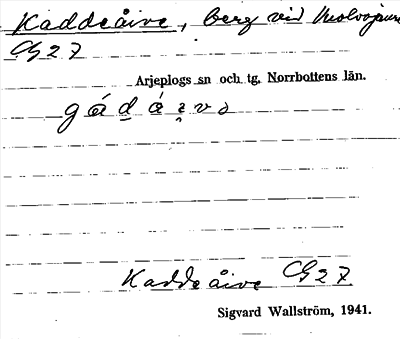 Kaddeåive, berg vid
C27
Arjeplogs sn och tg. Norrbottens län.
gáḏá̱i̯və
Kaddeåive C27
Sigvard Wallström, 1941.